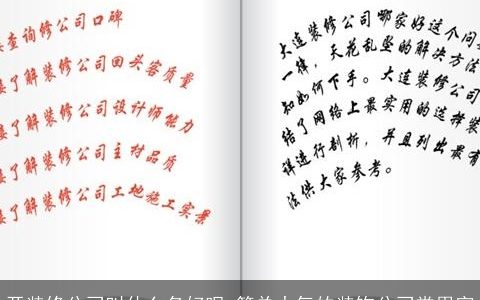 查询修公司口碑
了解装修公司回头客质量
了解装修公司设计师能力
了解装修公司主材品质
了解装修公司工地施工实景
大连装修公司哪家好这个问
一律，天花乱坠的解决方法
知如何下手。大连装修公司
结了网络上最实用的选择装
详进行剖析，并且列出最有
法供大家参考。